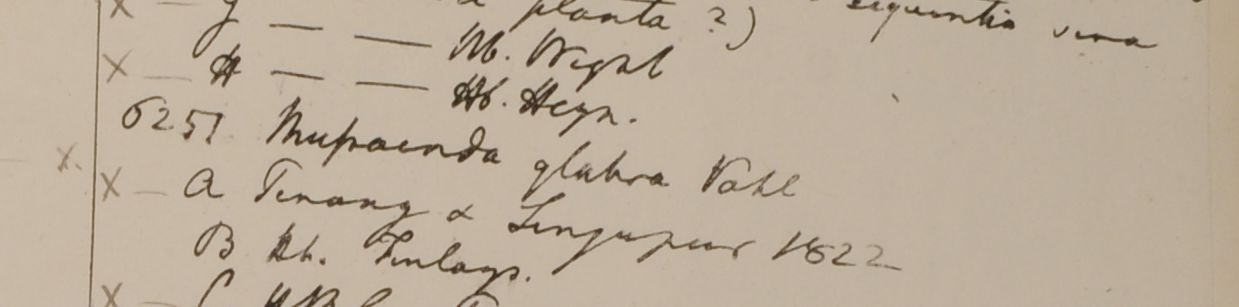 x — g — — planta ?) sequentia vera
x — H — — Hb. Wight
Hb. Heyn.
6251 Mussaenda glabra Vahl
x — a Penang & Singapur 1822
B Hb. Finlays.
x — C HBC